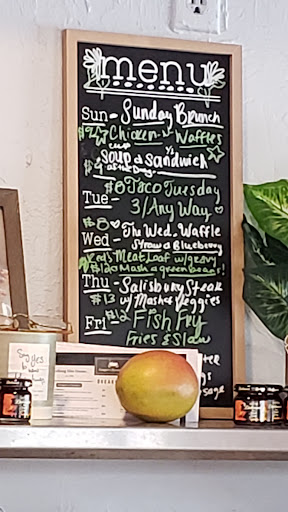 menu
Sun - Sunday Brunch
Chicken n Waffles
cup 1/2
Soup & Sandwich
of the Day
Tue - $8 Taco Tuesday
3/Any Way
$8
Wed - The Wed. Waffle
Straw & Blueberry
Ked's Meat Loaf w/gravy
$12 Mash & green beans!
Thu - Salisbury Steak
$13 w/ Mash & Veggies
Fri - $12 Fish Fry
Fries & Slaw
Say
yes